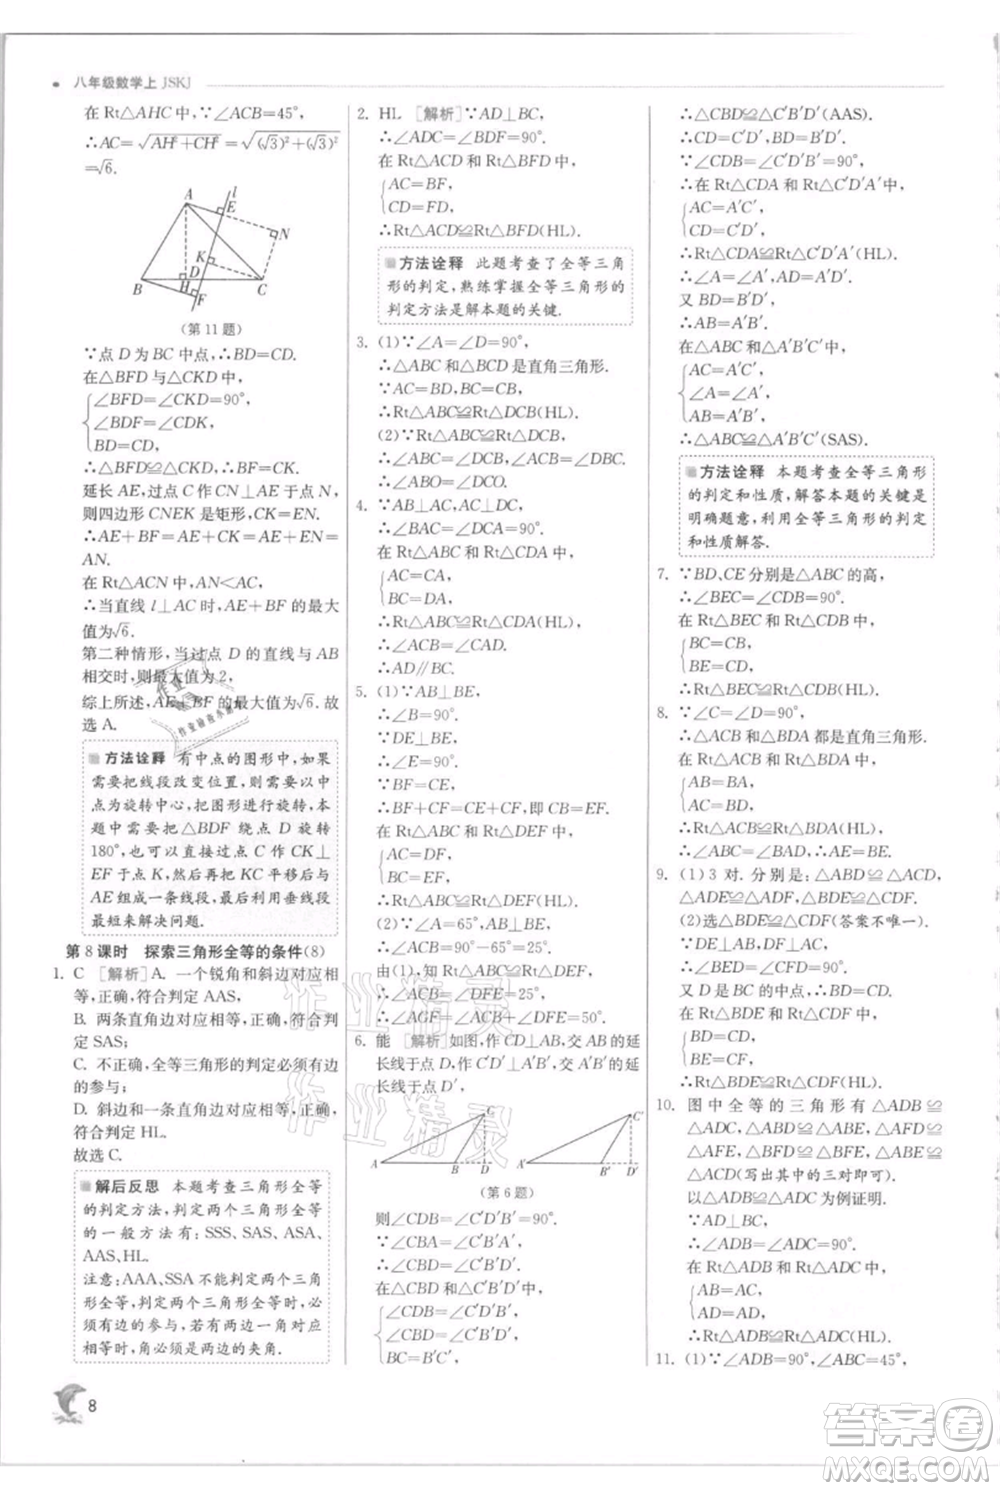 八年级数学上 JSKJ
在 Rt△AHC 中,∵∠ACB=45°,
∴AC=√(AH²+CH²)=√((√3)²+(√3)²)
=√6.
A
l
E
N
K
B
H
D
F
C
(第 11 题)
∵点 D 为 BC 中点,∴BD=CD.
在△BFD 与△CKD 中,
∠BFD=∠CKD=90°,
∠BDF=∠CDK,
BD=CD,
∴△BFD≌△CKD,∴BF=CK.
延长 AE,过点 C 作 CN⊥AE 于点 N,
则四边形 CNEK 是矩形,CK=EN.
∴AE+BF=AE+CK=AE+EN=
AN.
在 Rt△ACN 中,AN<AC.
∴当直线 l⊥AC 时,AE+BF 的最大
值为√6.
第二种情形,当过点 D 的直线与 AB
相交时,则最大值为 2,
综上所述,AE+BF 的最大值为√6. 故
选 A.
方法诠释 有中点的图形中,如果
需要把线段改变位置,则需要以中
点为旋转中心,把图形进行旋转,本
题中需要把△BDF 绕点 D 旋转
180°,也可以直接过点 C 作 CK⊥
EF 于点 K,然后再把 KC 平移后与
AE 组成一条线段,再利用垂线段
最短来解决问题.
第 8 课时 探索三角形全等的条件(8)
1. C [解析] A. 一个锐角和斜边对应相
等,正确,符合判定 AAS,
B. 两条直角边对应相等,正确,符合判
定 SAS;
C. 不正确,全等三角形的判定必须有边
的参与;
D. 斜边和一条直角边对应相等,正确,
符合判定 HL.
故选 C.
解后反思 本题考查三角形全等
的判定方法,判定两个三角形全等
的一般方法有: SSS, SAS, ASA,
AAS,HL.
注意:AAA,SSA 不能判定两个三角
形全等,判定两个三角形全等时,必
须有边的参与,若有两边一角对应
相等时,角必须是两边的夹角.
2. HL [解析]∵AD⊥BC,
∴∠ADC=∠BDF=90°.
在 Rt△ACD 和 Rt△BFD 中,
AC=BF,
CD=FD,
∴Rt△ACD≌Rt△BFD(HL).
方法诠释 此题考查了全等三角
形的判定,熟练掌握全等三角形的
判定方法是解本题的关键.
3. (1)∵∠A=∠D=90°,
∴△ABC 和△BCD 是直角三角形.
∵AC=BD,BC=CB,
∴Rt△ABC≌Rt△DCB(HL).
(2)∵Rt△ABC≌Rt△DCB,
∴∠ABC=∠DCB,∠ACB=∠DBC.
∴∠ABO=∠DCO.
4. ∵AB⊥AC,AC⊥DC,
∴∠BAC=∠DCA=90°.
在 Rt△ABC 与 Rt△CDA 中,
AC=CA,
BC=DA,
∴Rt△ABC≌Rt△CDA(HL).
∴∠ACB=∠CAD.
∴AD∥BC.
5. (1)∵AB⊥BE,
∴∠B=90°.
∵DE⊥BE,
∴∠E=90°.
∴BF+CF=CE+CF,即 CB=EF.
在 Rt△ABC 和 Rt△DEF 中,
AC=DF,
BC=EF,
∴Rt△ABC≌Rt△DEF(HL).
(2)∵∠A=65°,AB⊥BE,
∴∠ACB=90°-65°=25°.
由(1),知 Rt△ABC≌Rt△DEF,
∴∠ACB=∠DFE=25°,
∴∠AGF=∠ACF+∠DFE=50°.
6. 能 [解析]如图,作 CD⊥AB,交 AB 的延
长线于点 D,作 C′D′⊥A′B′,交 A′B′ 的延
长线于点 D′,
C
A
B
D
C′
B′
D′
(第 6 题)
则∠CDB=∠C′D′B′=90°.
∵∠ABC=∠A′B′C′,
∴∠CBD=∠C′B′D′.
在△CBD 和△C′B′D′ 中,
∠CDB=∠C′D′B′,
∠CBD=∠C′B′D′,
BC=B′C′,
∴△CBD≌△C′B′D′(AAS).
∴CD=C′D′,BD=B′D′.
∵∠CDB=∠C′D′B′=90°,
∴在 Rt△CDA 和 Rt△C′D′A′ 中,
AC=A′C′,
CD=C′D′,
∴Rt△CDA≌Rt△C′D′A′(HL).
∴∠A=∠A′,AD=A′D′.
又 BD=B′D′,
∴AB=A′B′.
在△ABC 和△A′B′C′ 中,
AC=A′C′,
∠A=∠A′,
AB=A′B′,
∴△ABC≌△A′B′C′(SAS).
方法诠释 本题考查全等三角形
的判定和性质,解答本题的关键是
明确题意,利用全等三角形的判定
和性质解答.
7. ∵BD,CE 分别是△ABC 的高,
∴∠BEC=∠CDB=90°.
在 Rt△BEC 和 Rt△CDB 中,
BC=CB,
BE=CD,
∴Rt△BEC≌Rt△CDB(HL).
8. ∵∠C=∠D=90°,
∴△ACB 和△BDA 都是直角三角形.
在 Rt△ACB 和 Rt△BDA 中,
AB=BA,
AC=BD,
∴Rt△ACB≌Rt△BDA(HL).
∴∠ABC=∠BAD,∴AE=BE.
9. (1)3 对. 分别是:△ABD≌△ACD,
△ADE≌△ADF,△BDE≌△CDF.
(2)选△BDE≌△CDF(答案不唯一).
∵DE⊥AB,DF⊥AC,
∴∠BED=∠CFD=90°.
又 D 是 BC 的中点,∴BD=CD.
在 Rt△BDE 和 Rt△CDF 中,
BD=CD,
BE=CF,
∴Rt△BDE≌Rt△CDF(HL).
10. 图中全等的三角形有△ADB≌
△ADC, △ABE≌△ACF, △AED≌
△AFE, △BED≌△CFD, △ABF≌
△ACE. (写出其中的三对即可)
以△ADB≌△ADC 为例证明.
∵AD⊥BC,
∴∠ADB=∠ADC=90°.
在 Rt△ADB 和 Rt△ADC 中,
AB=AC,
AD=AD,
∴Rt△ADB≌Rt△ADC(HL).
11. (1)∵∠ADB=90°,∠ABC=45°,
8
作业精灵
作业精灵
答案圈
MXQE.COM